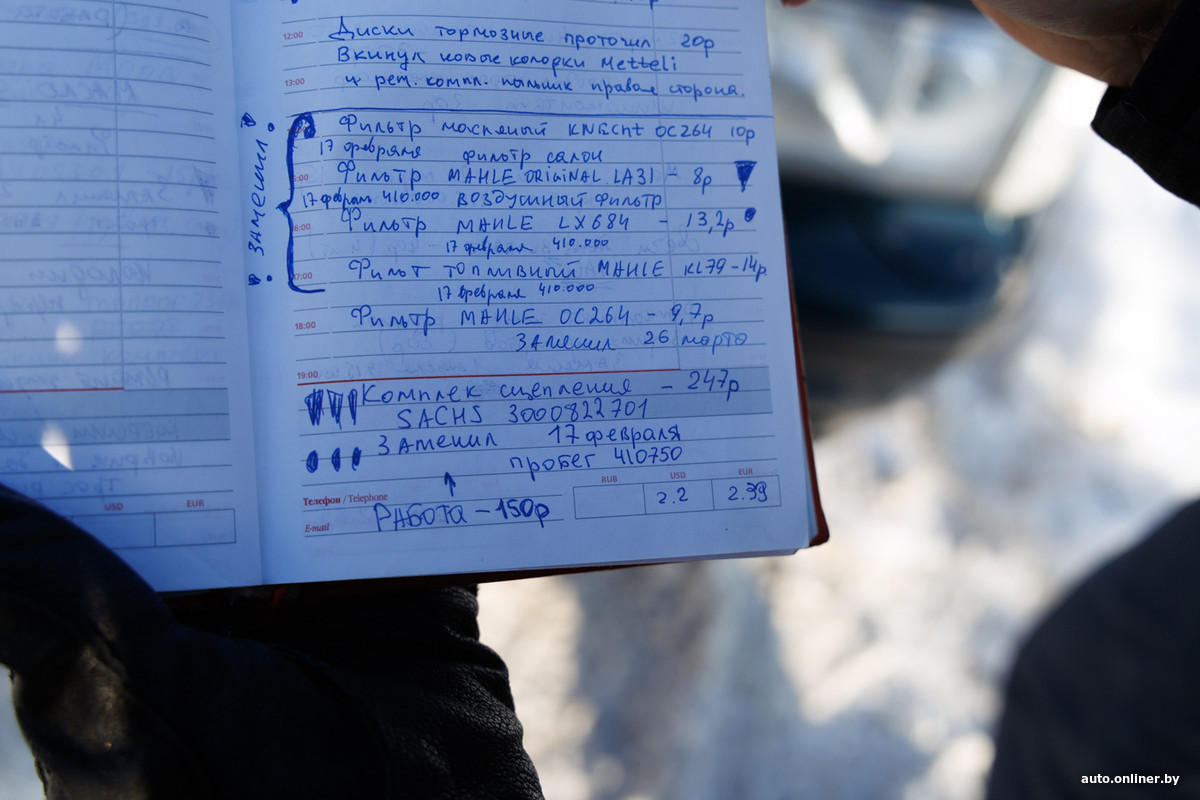 12:00
Диски тормозные проточил 20р
Вкинул новые колодки Metteli
13:00
и рем. компл. пыльник правая сторона.
Фильтр масляный KNECht OC264 10р
17 февраля фильтр салон
Фильтр MAHLE ORIGINAL LA31 - 8р
17 феврал 410.000 воздушный фильтр
Фильтр MAHLE LX684 - 13,2р
17 февраля 410.000
17:00
Фильт топливный MAHLE KL79-14р
17 февраля 410.000
заменил
18:00
Фильтр MAHLE OC264 - 9,7р
Заменил 26 марта
19:00
Комплек сцепления - 247р
SACHS 3000822701
Заменил 17 февраля
пробег 410750
Телефон / Telephone
E-mail
РАБОТА - 150р
RUB USD EUR
2.2 2.39
USD EUR
auto.onliner.by